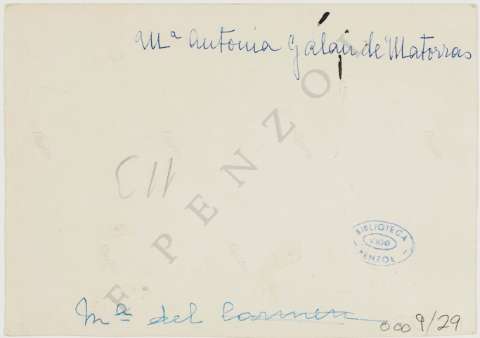 Mª Antonia Galán de Matorras
F. PENZOL
113
BIBLIOTECA
VIGO
PENZOL
Mª del Carmen
0009/29